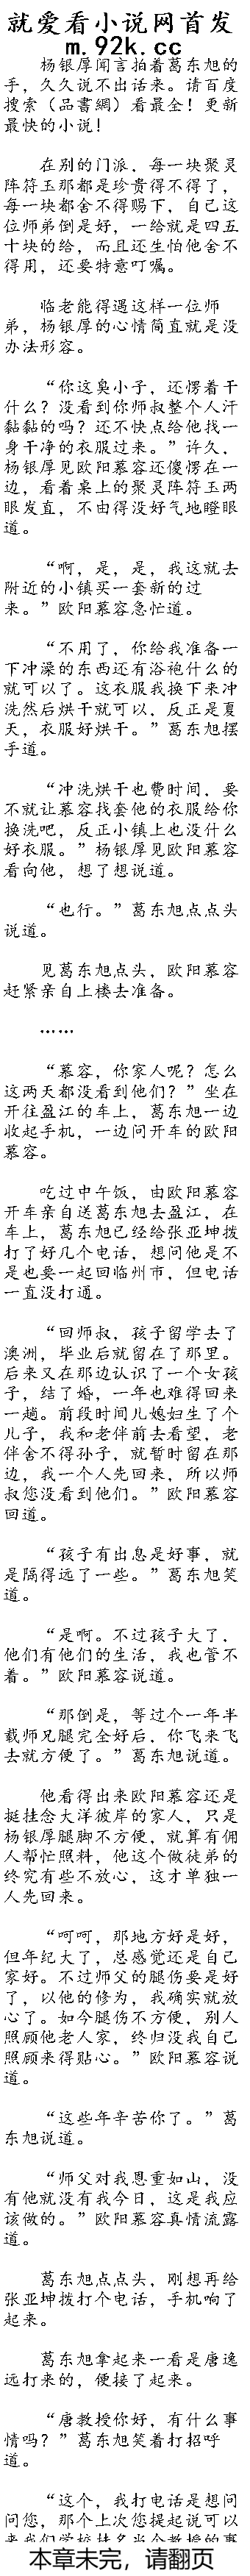 就爱看小说网首发
m.92k.cc
杨银厚闻言拍着葛东旭的
手，久久说不出话来。请百度
搜索（品書網）看最全！更新
最快的小说！
在别的门派，每一块聚灵
阵符玉那都是珍贵得不得了，
每一块都舍不得赐下，自己这
位师弟倒是好，一给就是四五
十块的给，而且还生怕他舍不
得用，还要特意叮嘱。
临老能得遇这样一位师
弟，杨银厚的心情简直就是没
办法形容。
“你这臭小子，还愣着干
什么？没看到你师叔整个人汗
黏黏的吗？还不快点给他找一
身干净的衣服过来。”许久，
杨银厚见欧阳慕容还傻愣在一
边，看着桌上的聚灵阵符玉两
眼发直，不由得没好气地瞪眼
道。
“啊，是，是，我这就去
附近的小镇买一套新的过
来。”欧阳慕容急忙道。
“不用了，你给我准备一
下冲澡的东西还有浴袍什么的
就可以了。这衣服我换下来冲
洗然后烘干就可以，反正是夏
天，衣服好烘干。”葛东旭摆
手道。
“冲洗烘干也费时间，要
不就让慕容找套他的衣服给你
换洗吧，反正小镇上也没什么
好衣服。”杨银厚见欧阳慕容
看向他，想了想说道。
“也行。”葛东旭点点头
说道。
见葛东旭点头，欧阳慕容
赶紧亲自上楼去准备。
……
“慕容，你家人呢？怎么
这两天都没看到他们？”坐在
开往盈江的车上，葛东旭一边
收起手机，一边问开车的欧阳
慕容。
吃过中午饭，由欧阳慕容
开车亲自送葛东旭去盈江，在
车上，葛东旭已经给张亚坤拨
打了好几个电话，想问他是不
是也要一起回临州市，但电话
一直没打通。
“回师叔，孩子留学去了
澳洲，毕业后就留在了那里。
后来又在那边认识了一个女孩
子，结了婚，一年也难得回来
一趟。前段时间儿媳妇生了个
儿子，我和老伴前去看望，老
伴舍不得孙子，就暂时留在那
边，我一个人先回来，所以师
叔您没看到他们。”欧阳慕容
回道。
“孩子有出息是好事，就
是隔得远了一些。”葛东旭笑
道。
“是啊。不过孩子大了，
他们有他们的生活，我也管不
着。”欧阳慕容说道。
“那倒是，等过个一年半
载师兄腿完全好后，你飞来飞
去就方便了。”葛东旭说道。
他看得出来欧阳慕容还是
挺挂念大洋彼岸的家人，只是
杨银厚腿脚不方便，就算有佣
人帮忙照料，他这个做徒弟的
终究有些不放心，这才单独一
人先回来。
“呵呵，那地方好是好，
但年纪大了，总感觉还是自己
家好。不过师父的腿伤要是好
了，以他的修为，我确实就放
心了。如今腿伤不方便，别人
照顾他老人家，终归没我自己
照顾来得贴心。”欧阳慕容说
道。
“这些年辛苦你了。”葛
东旭说道。
“师父对我恩重如山，没
有他就没有我今日，这是我应
该做的。”欧阳慕容真情流露
道。
葛东旭点点头，刚想再给
张亚坤拨打个电话，手机响了
起来。
葛东旭拿起来一看是唐逸
远打来的，便接了起来。
“唐教授你好，有什么事
情吗？”葛东旭笑着打招呼
道。
“这个，我打电话是想问
问您，那个上次您提起说可以
来我们学校挂名当个教授的事
本章未完，请翻页